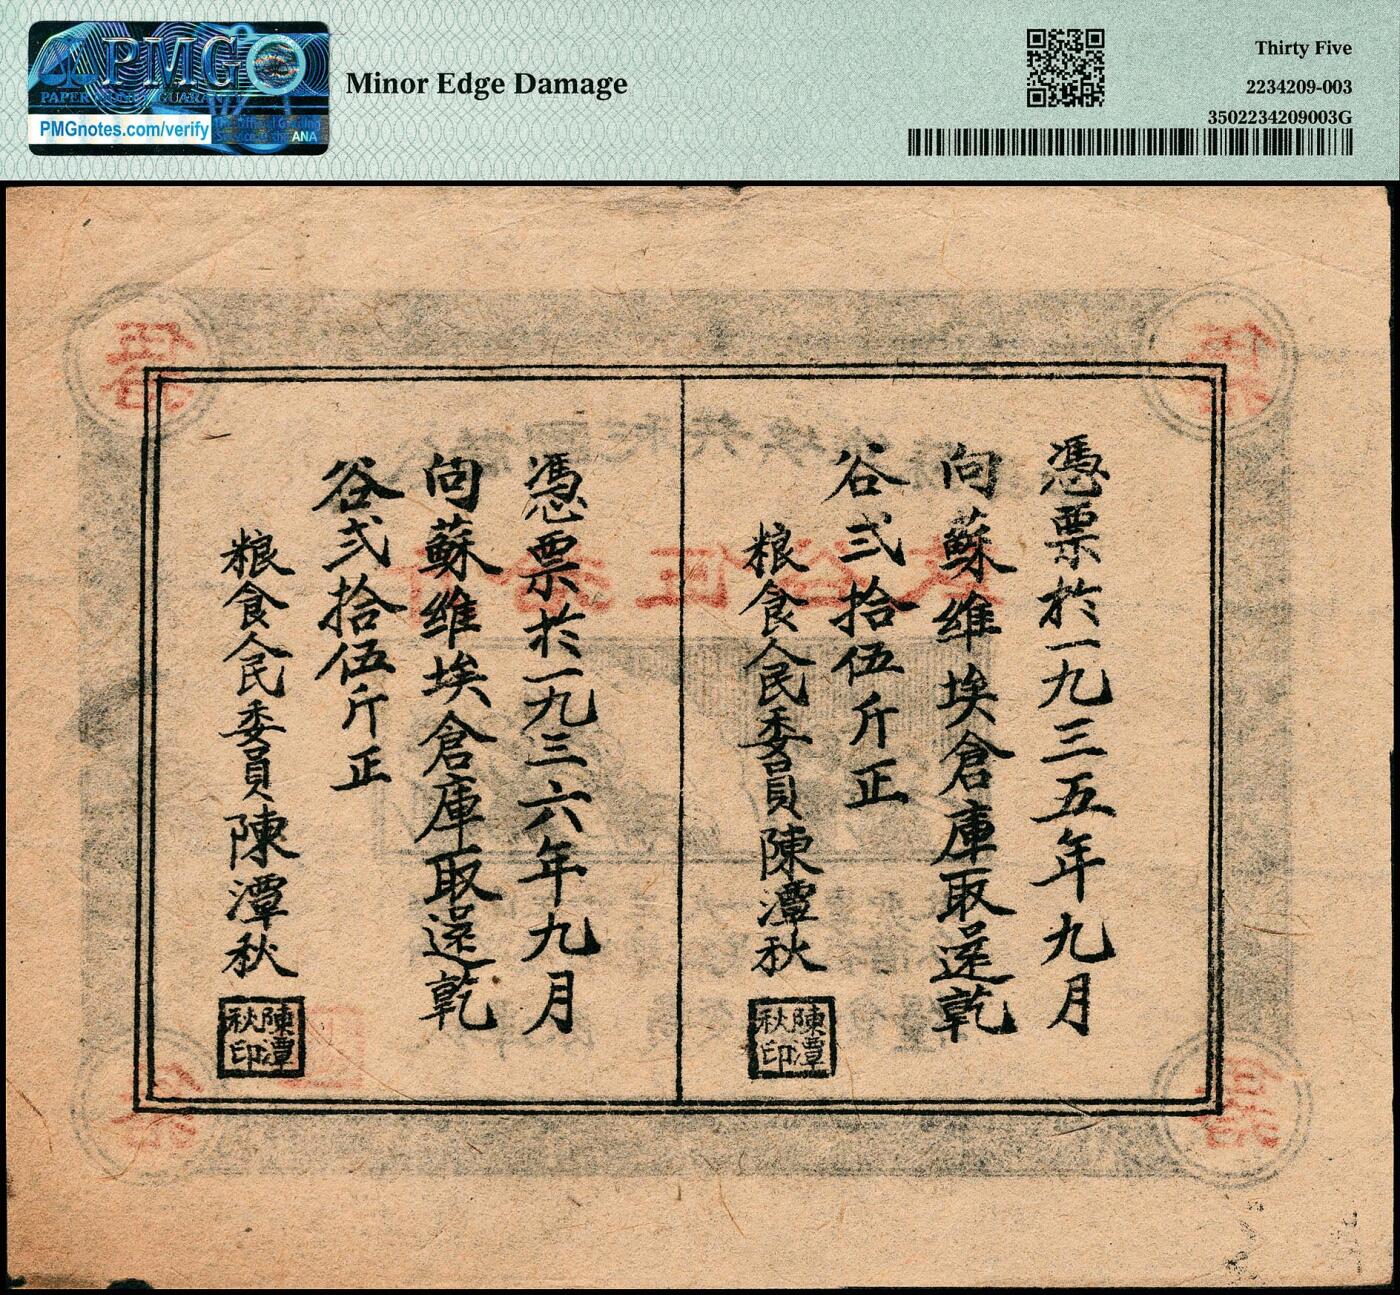 PMG
PAPER MONEY GUARANTY
PMGnotes.com/verify
ANA
Minor Edge Damage
Thirty Five
2234209-003
3502234209003G
憑票於一九三五年九月
向蘇維埃倉庫取還乾
谷弍拾伍斤正
粮食人民委員陳潭秋
陳潭
秋印
憑票於一九三六年九月
向蘇維埃倉庫取還乾
谷弍拾伍斤正
粮食人民委員陳潭秋
陳潭
秋印